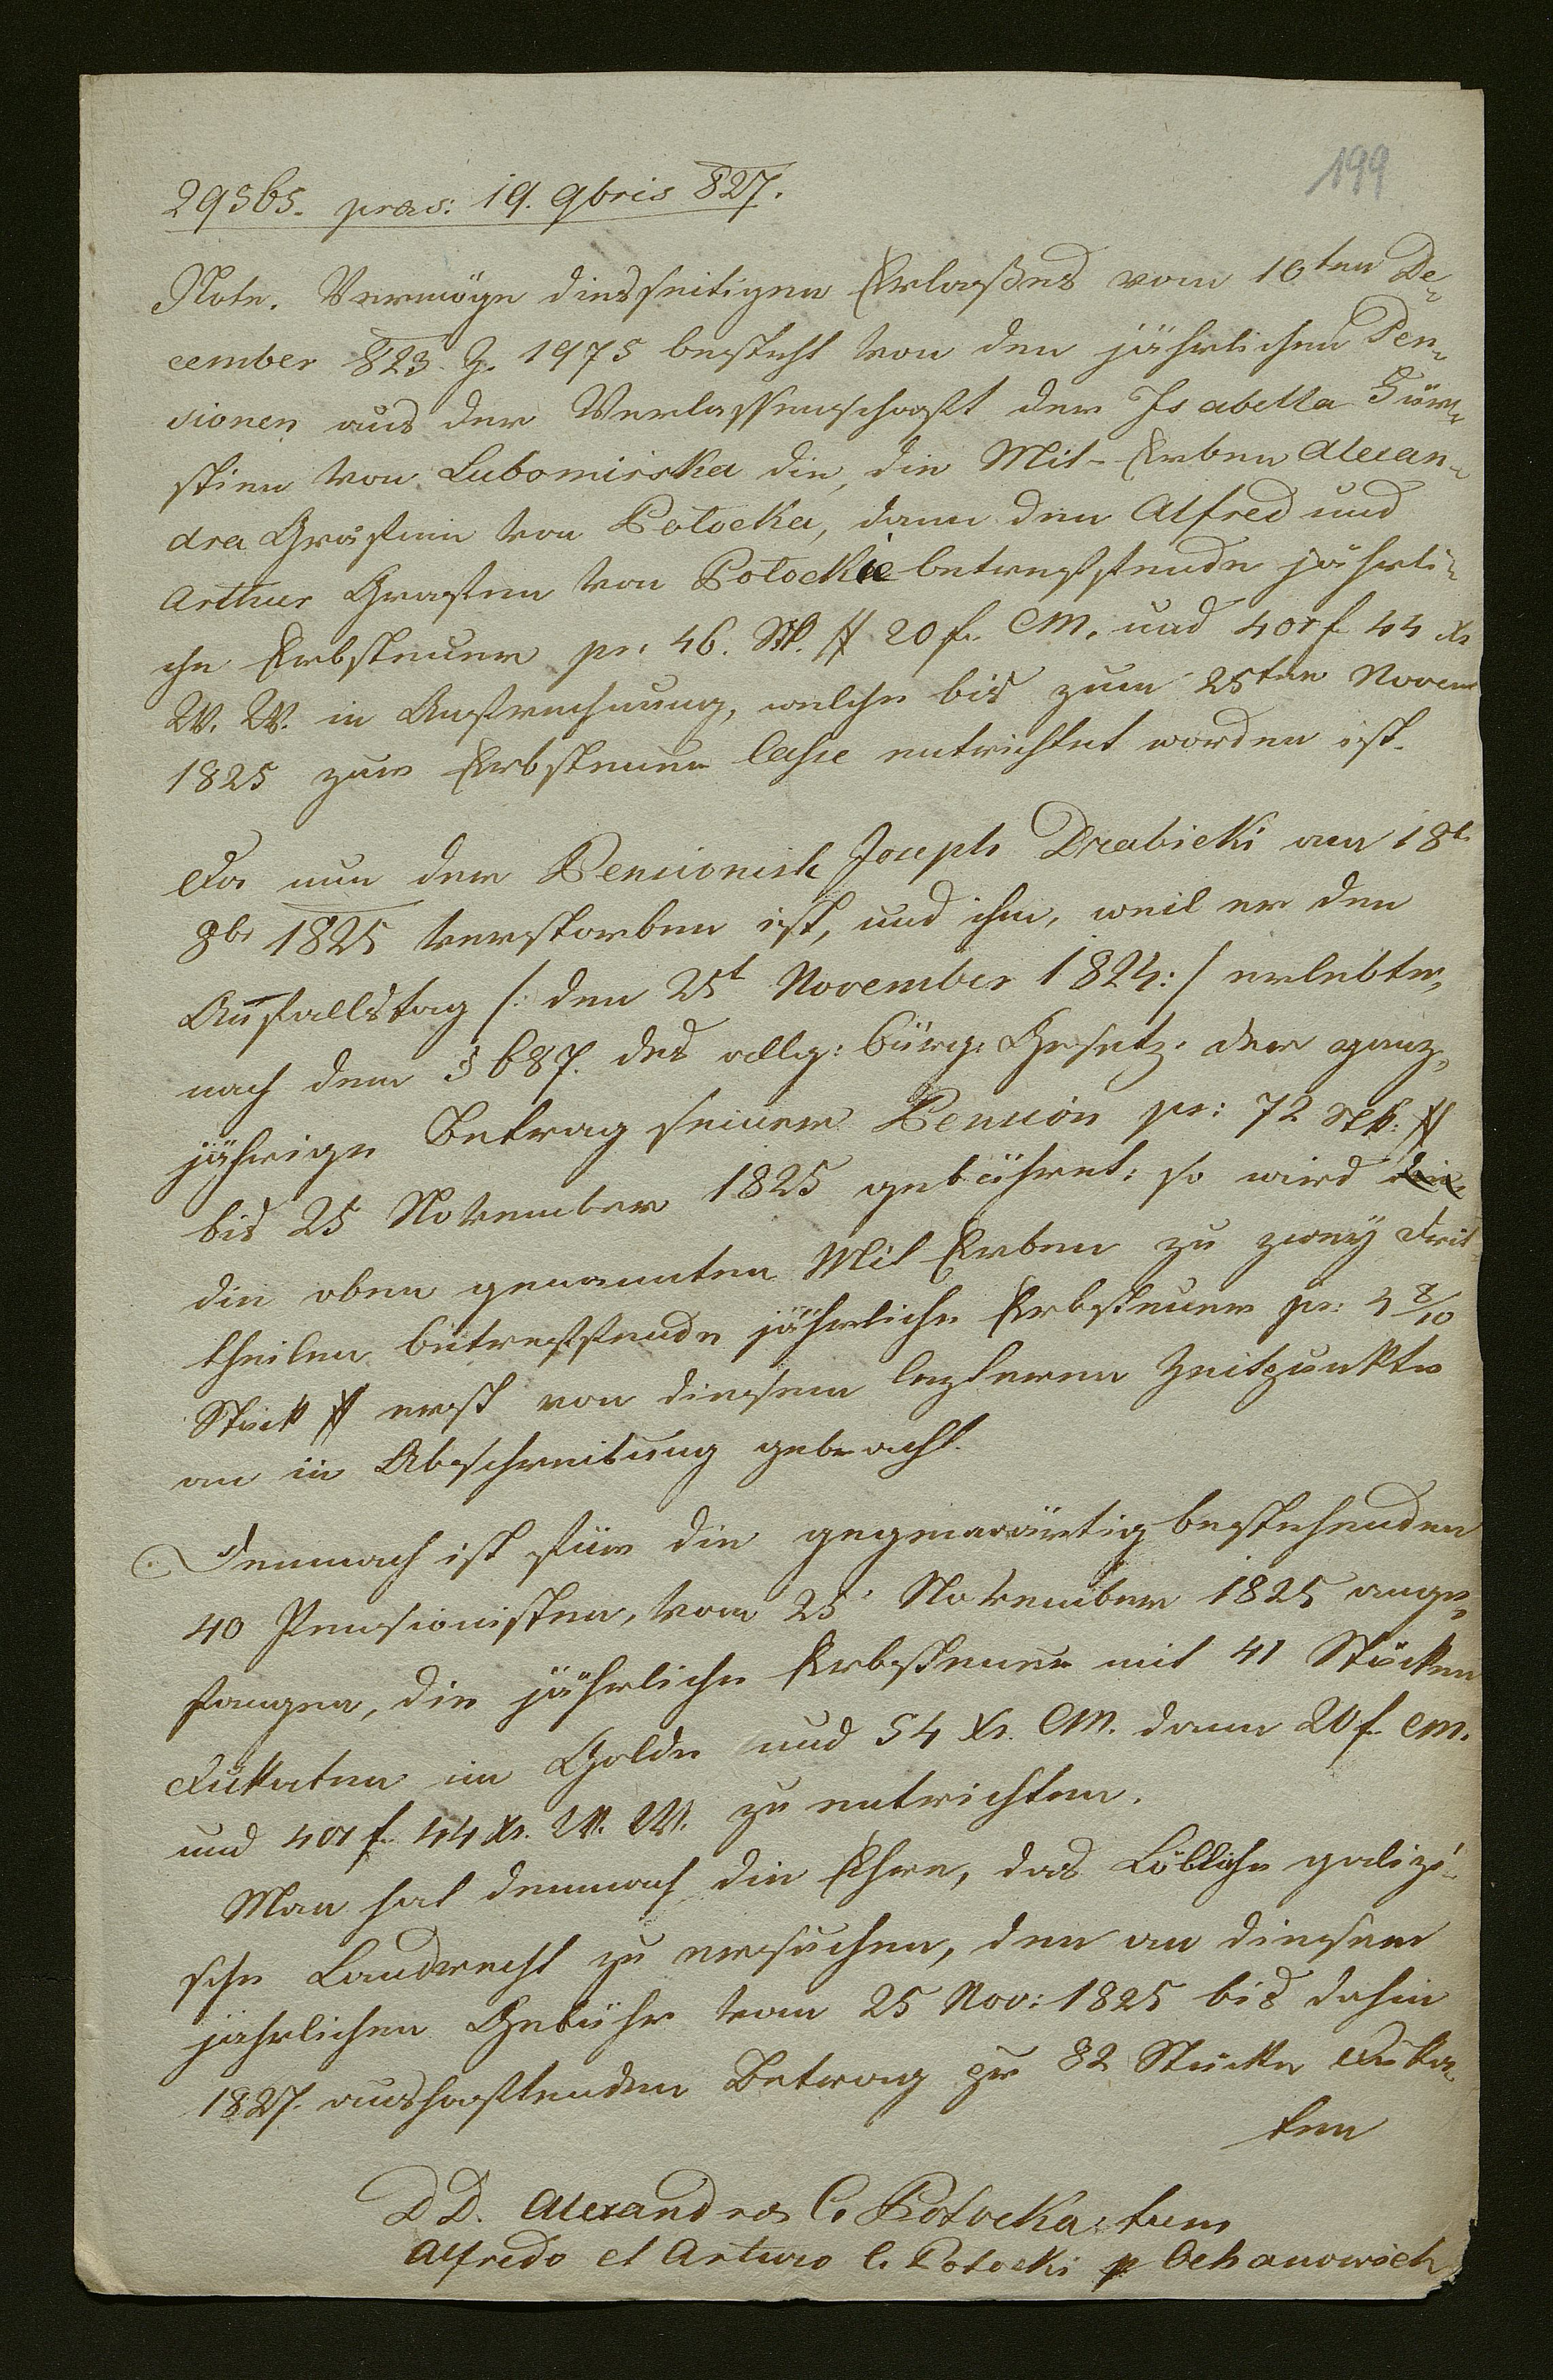 199
29365. præs: 19. 9bris 827.
Note. Vermöge diesseitigen Erlaßes vom 10ten De¬
cember 823. Z. 1975 besteht von den jährlichen Pen¬
sionen aus der Verlassenschaft der Isabella Für¬
stinn von Lubomirska die, die Mit-Erben Alexan¬
dra Gräfinn von Potocka, dann den Alfred und
Arthur Grafen von Potockie betreffende jährli¬
che Erbsteuer pr. 46. Stk. # 20 f. CM. und 401 f 44 xr
W. W. in Aufrechnung, welche bis zum 25ten Novem
1825 zur Erbsteuer Casse entrichtet worden ist.
Da nun der Pensionist Joseph Drabicki am 18t.
8br 1825 verstorben ist, und ihm, weil er den
Anfallstag /: den 25t November 1824 :/ erlebte,
nach dem § 687. des allg: bürg: Gesetz. der ganz¬
jährige Betrag seiner Pension pr: 72 Stk: #
bis 25 November 1825 gebühret: so wird die
die oben genannten Mit-Erben zu zwey Drit¬
theilen betreffende jährliche Erbsteuer pr: 4 8/10
Stück # erst von diesem letzteren Zeitpunkte
an in Abschreibung gebracht.
Demnach ist für die gegenwärtig bestehenden
40 Pensionisten, vom 25t November 1825 ange¬
fangen, die jährliche Erbsteuer mit 41 Stücken
Dukaten im Golde und 54 xr. CM. dann 20 f. CM.
und 401 f. 44 xr. W. W. zu entrichten.
Man hat demnach die Ehre, das Löbliche galizi¬
sche Landrecht zu ersuchen, den an diesem
jährlichen Gebühr vom 25 Nov: 1825 bis dahin
1827. aushaftenden Betrag pr 82 Stücke Duka¬
ten
DD. Alexandra C. Potocka, tum
Alfredo et Arturo C. Potocki p Ochanowich